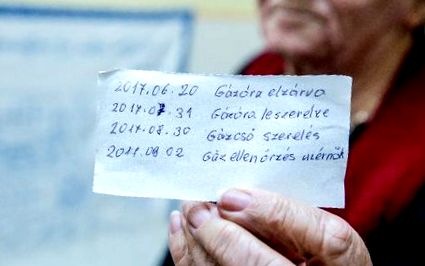 2017.06.20 Gázóra elzárva
2017.07.31 Gázóra leszerelve
2017.08.30 Gázcső szerelés
2017.09 02 Gázellenőrzés mérnök